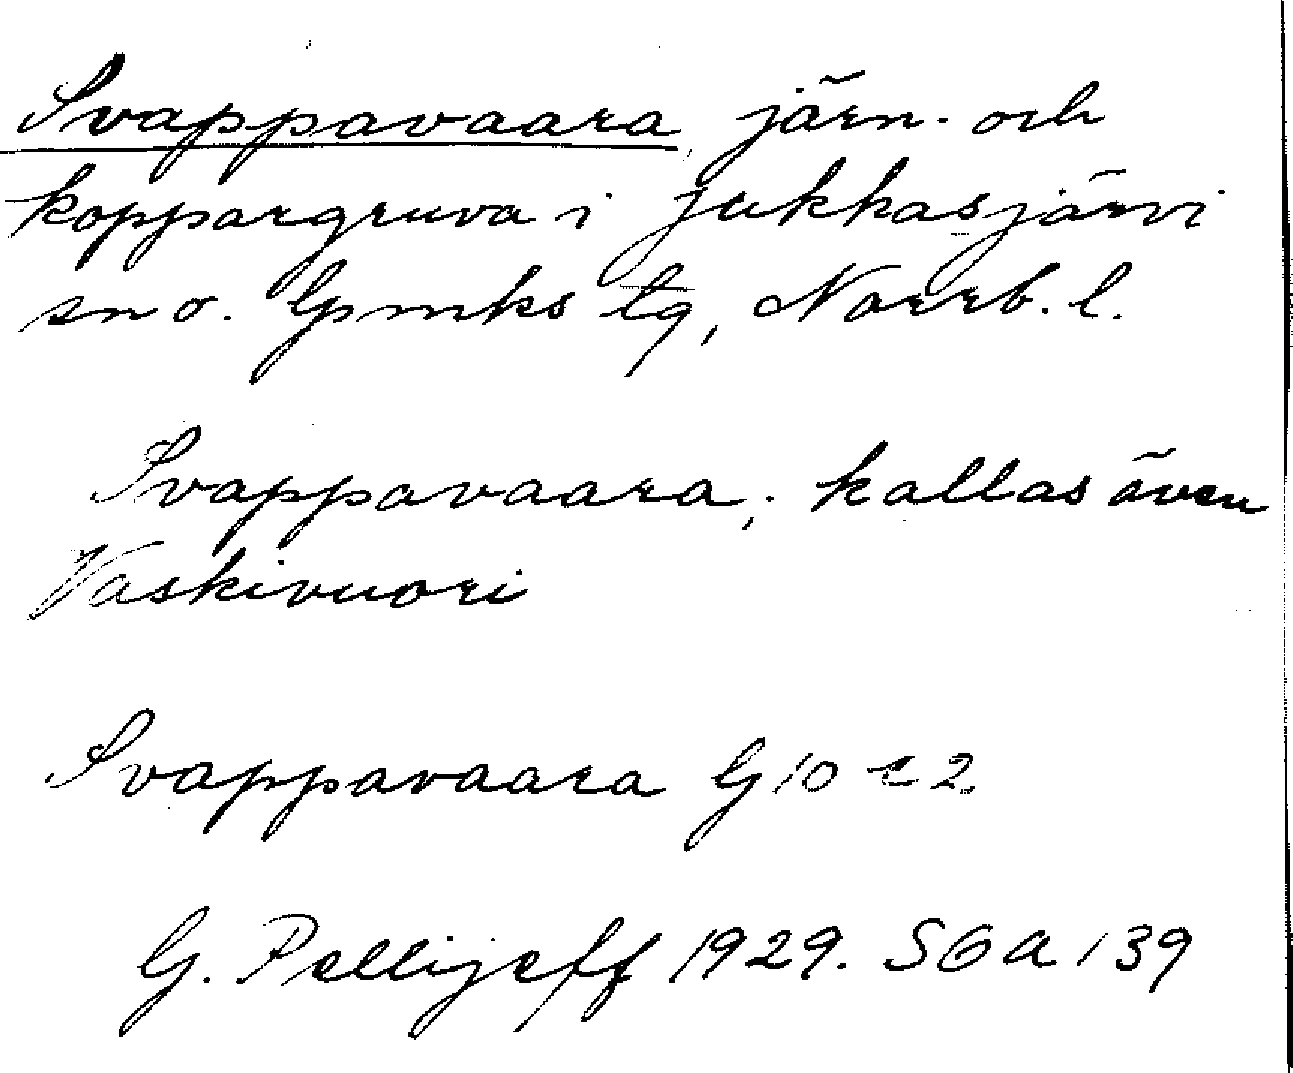 Svappavaara, järn- och
koppargruva i Jukkasjärvi
sn o. Gpmks tg, Norrb. l.
Svappavaara; kallas även
Vaskivuori
Svappavaara G 10 c 2.
G. Pellijeff 1929. SGA 139